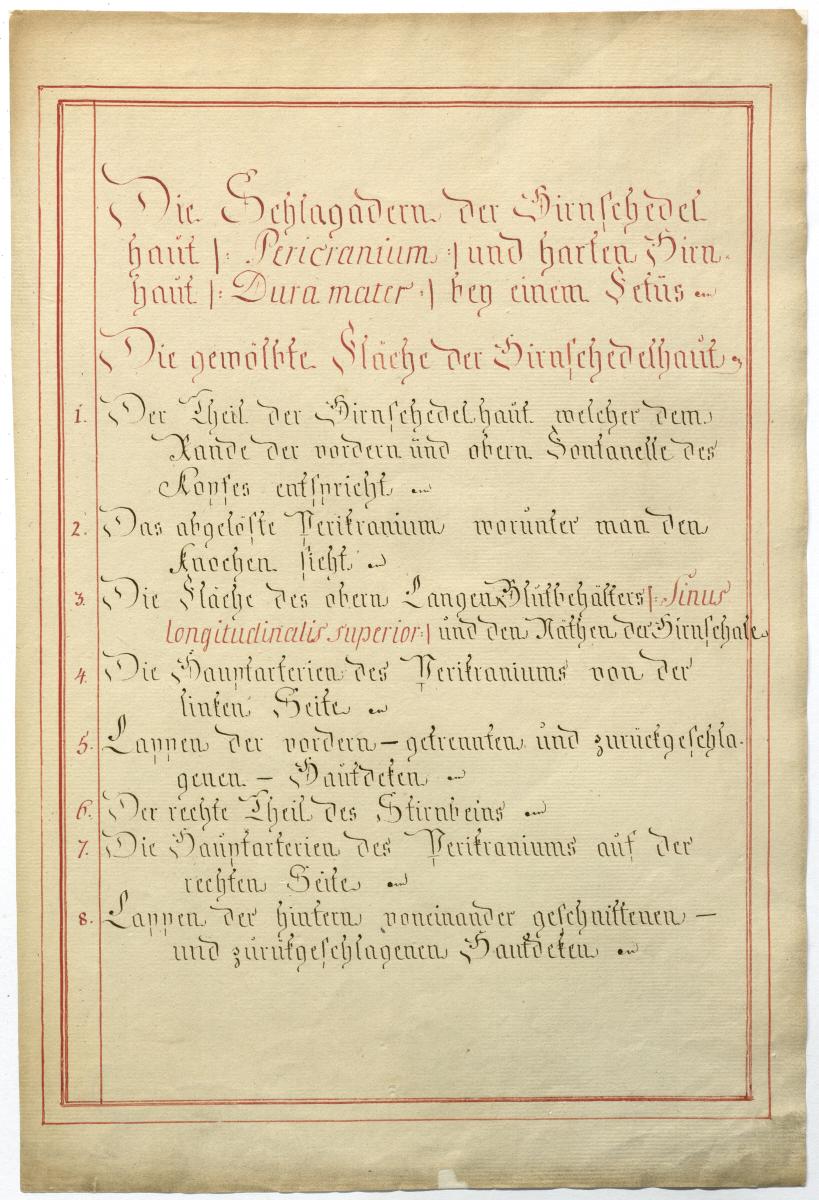 Die Schlagadern der Hirnschedel
haut |: Pericranium :| und harten Hirn-
haut |: Dura mater :| bey einem Fetüs
Die gewölbte Fläche der Hirnschedelhaut
1. Der Theil der Hirnschedelhaut welcher dem
Rande der vordern und obern Fontanelle des
Kopfes entspricht
2. Das abgelöste Perikranium worunter man den
Knochen sieht
3. Die Fläche des obern Langen Blutbehälters |: Sinus
longitudinalis superior :| und den Näthen der Hirnschale
4. Die Hauptarterien des Perikraniums von der
linken Seite
5. Lappen der vordern – getrennten und zurückgeschla-
genen – Hautdeken
6. Der rechte Theil des Stirnbeins
7. Die Hauptarterien des Perikraniums auf der
rechten Seite
8. Lappen der hintern voneinander geschnittenen –
und zurükgeschlagenen Hautdeken